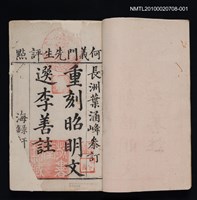 NMTL20100020708-001
何義門先生評點
長洲葉涵峰參訂
重刻昭明文
選李善註
海錄軒